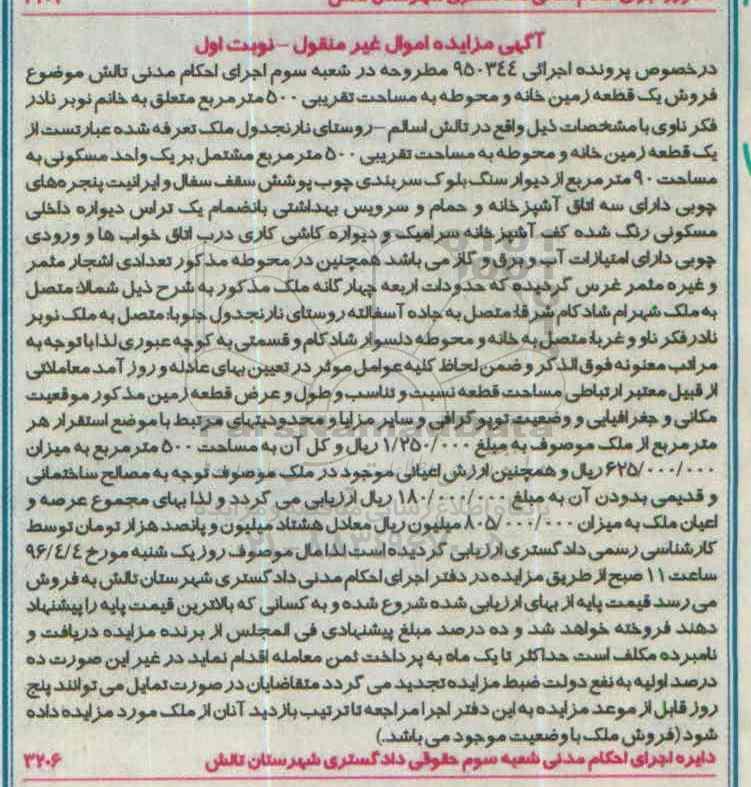 آگهی مزایده اموال غیر منقول – نوبت اول
درخصوص پرونده اجرائی ۹۵۰۳۴۴ مطروحه در شعبه سوم اجرای احکام مدنی تالش موضوع
فروش یک قطعه زمین خانه و محوطه به مساحت تقریبی ۵۰۰ مترمربع متعلق به خانم نوبر نادر
فکر ناوی با مشخصات ذیل واقع در تالش اسالم – روستای نارنجدول ملک تعرفه شده عبارتست از
یک قطعه زمین خانه و محوطه به مساحت تقریبی ۵۰۰ مترمربع مشتمل بر یک واحد مسکونی به
مساحت ۹۰ متر مربع از دیوار سنگ بلوک سربندی چوب پوشش سقف سفال و ایرانیت پنجره های
چوبی دارای سه اتاق آشپزخانه و حمام و سرویس بهداشتی بانضمام یک تراس دیواره داخلی
مسکونی رنگ شده کف آشپزخانه سرامیک و دیواره کاشی کاری درب اتاق خواب ها و ورودی
چوبی دارای امتیازات آب و برق و گاز می باشد همچنین در محوطه مذکور تعدادی اشجار مثمر
و غیره مثمر غرس گردیده که حدودات اربعه چهارگانه ملک مذکور به شرح ذیل شمالا: متصل
به ملک شهرام شادکام شرقا: متصل به جاده آسفالته روستای نارنجدول جنوبا: متصل به ملک نوبر
نادرفکر ناو و غربا: متصل به خانه و محوطه دلسوار شادکام و قسمتی به کوچه عبوری لذا باتوجه به
مراتب معنونه فوق الذکر و ضمن لحاظ کلیه عوامل موثر در تعیین بهای عادله و روز آمد معاملاتی
از قبیل معتبر ارتباطی مساحت قطعه نسبت و تناسب و طول و عرض قطعه زمین مذکور موقعیت
مکانی و جغرافیایی و وضعیت توپوگرافی و سایر مزایا و محدودیتهای مرتبط با موضع استقرار هر
مترمربع از ملک موصوف به مبلغ ۱/۲۵۰/۰۰۰ ریال و کل آن به مساحت ۵۰۰ مترمربع به میزان
۶۲۵/۰۰۰/۰۰۰ ریال و همچنین ارزش اعیانی موجود در ملک موصوف توجه به مصالح ساختمانی
و قدیمی بدودن آن به مبلغ ۱۸۰/۰۰۰/۰۰۰ ریال ارزیابی می گردد و لذا بهای مجموع عرصه و
اعیان ملک به میزان ۸۰۵/۰۰۰/۰۰۰ میلیون ریال معادل هشتاد میلیون و پانصد هزار تومان توسط
کارشناسی رسمی دادگستری ارزیابی گردیده است لذا مال موصوف روز یک شنبه مورخ ۹۶/۴/۴
ساعت ۱۱ صبح از طریق مزایده در دفتر اجرای احکام مدنی دادگستری شهرستان تالش به فروش
می رسد قیمت پایه از بهای ارزیابی شده شروع شده و به کسانی که بالاترین قیمت پایه را پیشنهاد
دهند فروخته خواهد شد و ده درصد مبلغ پیشنهادی فی المجلس از برنده مزایده دریافت و
نامبرده مکلف است حداکثر تا یک ماه به پرداخت ثمن معامله اقدام نماید در غیر این صورت ده
درصد اولیه به نفع دولت ضبط مزایده تجدید می گردد متقاضایان در صورت تمایل می توانند پنج
روز قابل از موعد مزایده به این دفتر اجرا مراجعه تا ترتیب بازدید آنان از ملک مورد مزایده داده
شود (فروش ملک با وضعیت موجود می باشد.)
دایره اجرای احکام مدنی شعبه سوم حقوقی دادگستری شهرستان تالش ۳۲۰۶